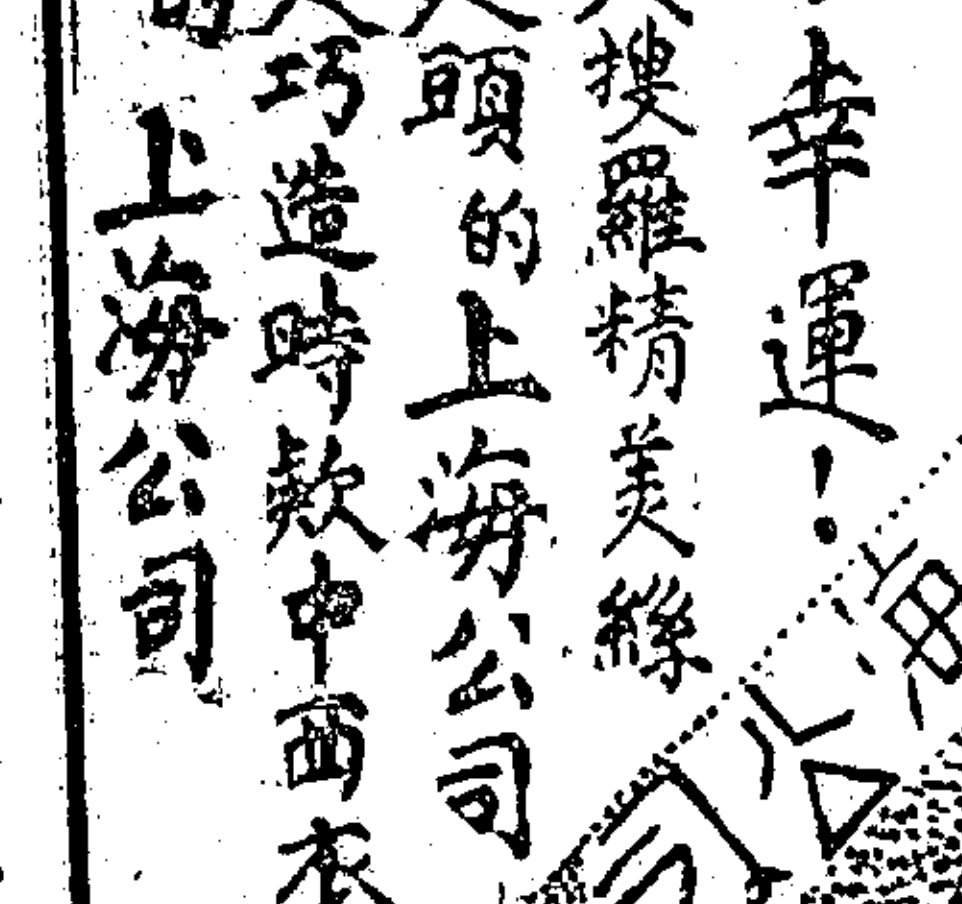 幸運!
搜羅精美綢
頭的上海公司
巧造時款中西衣
的 上海公司